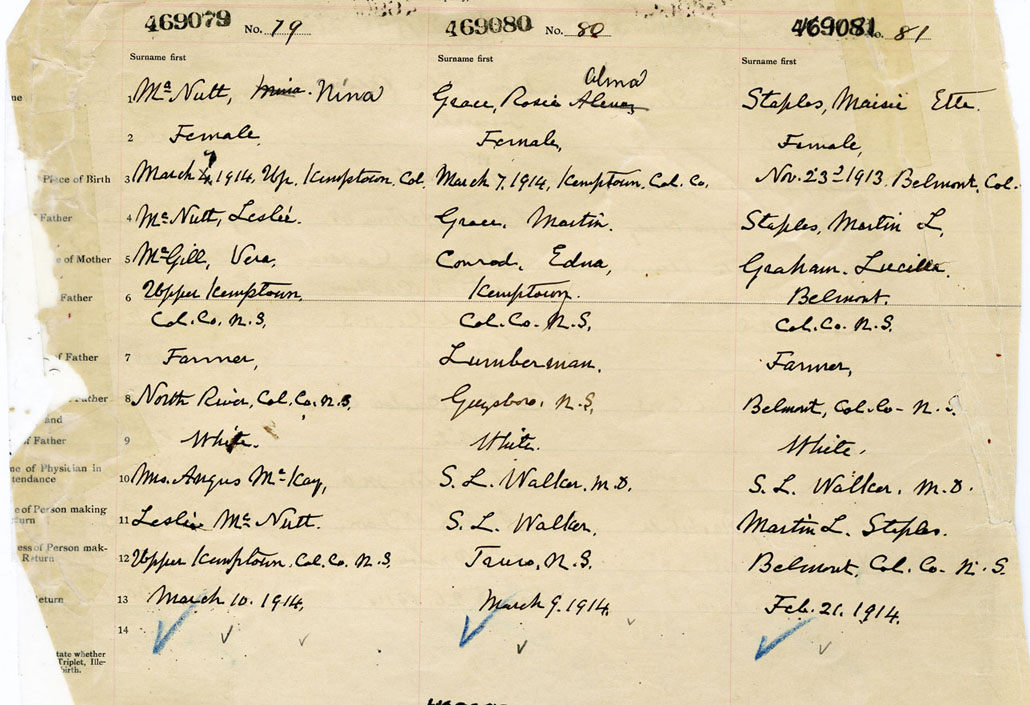 469079 No. 79
Surname first
1 Mc Nutt, Nina
2 Female,
3 March 7, 1914, Up. Kemptown, Col.
4 Mc Nutt, Leslie.
5 McGill, Vera,
6 Upper Kemptown,
Col. Co. N.S,
7 Farmer,
8 North River, Col. Co. N.S,
9 White.
10 Mrs. Angus McKay,
11 Leslie McNutt.
12 Upper Kemptown. Col. Co. N.S.
13 March 10. 1914,
14
469080 No. 80
Surname first
Alma
Grace, Rosie
Female,
March 7. 1914, Kemptown. Col. Co,
Grace, Martin.
Conrad, Edna,
Kemptown.
Col. Co. N.S,
Lumberman,
Guysboro, N.S,
White.
S. L. Walker, M.D.
S. L. Walker,
Truro, N.S.
March 9. 1914,
469081 No. 81
Surname first
Staples, Maisie Etta.
Female,
Nov. 23d 1913. Belmont, Col.
Staples, Martin L,
Graham. Lucilla,
Belmont.
Col. Co. N.S.
Farmer,
Belmont, Col. Co - N.S.
White,
S. L. Walker, M.D.
Martin L. Staples.
Belmont, Col. Co - N.S.
Feb. 21. 1914.
me
Place of Birth
Father
e of Mother
Father
of Father
Father
and
of Father
me of Physician in
tendance
e of Person making
turn
ess of Person mak-
Return
eturn
tate whether
Triplet, Ille-
birth.